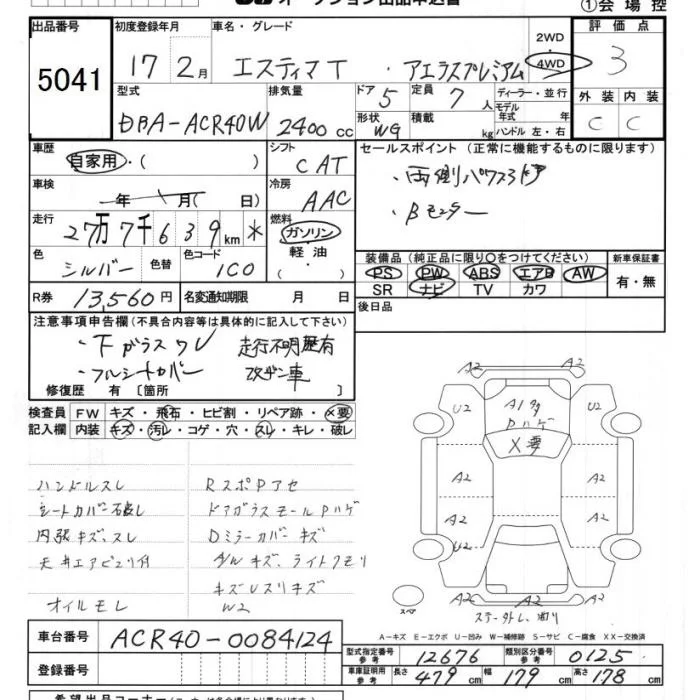 ①会場控
出品番号 初度登録年月 車名・グレード 2WD 評価点
5041 17 2月 エスティマT・アエラスプレミアム 4WD 3
型式 排気量 ドア 5 定員 7人 ディーラー・並行 外装 内装
モデル年式 年
DBA-ACR40W 2400cc 形状 WG 積載 kg ハンドル 左・右 C C
車歴 シフト セールスポイント(正常に機能するものに限ります)
自家用・( ) CAT ・両側パワスラ
車検 冷房 ・Bモニター
年 月( 日) AAC
走行 燃料
27万7千639km* ガソリン 装備品(純正品に限り〇をつけてください) 新車保証書
色 色替 色コード 軽油 PS PW ABS エアB AW 有・無
シルバー 1C0 ・( ) SR ナビ TV カワ
R券 13,560円 名変通知期限 月 日 後日品
注意事項申告欄(不具合内容等は具体的に記入して下さい)
・下ガラスワレ 走行不明歴有
・フルシートカバー 改ザン車
修復歴 有 [箇所 ]
検査員 FW キズ・飛石・ヒビ割・リペア跡・×要
記入欄 内装 キズ・汚レ・コゲ・穴・スレ・キレ・破レ
A2 A2
U2 A1多 U2
Pハゲ
×要
A2 A2
A2 A2
U2
A2 A2
スペア
ハンドルスレ RスポPアセ
シートカバー破レ ドアガラスモールPハゲ
内張キズ、スレ Dミラーカバーキズ
天井エアビュリ付 A/Wキズ、ライトクモリ
キズUスリキズ
オイルモレ W2
A-キズ E-エクボ U-凹み W-補修跡 S-サビ C-腐食 XX-交換済
車台番号 ACR40-0084124 型式指定番号 参考 12676 類別区分番号 参考 0125
登録番号 車庫証明用 参考 長さ 479cm 幅 179cm 高さ 178cm